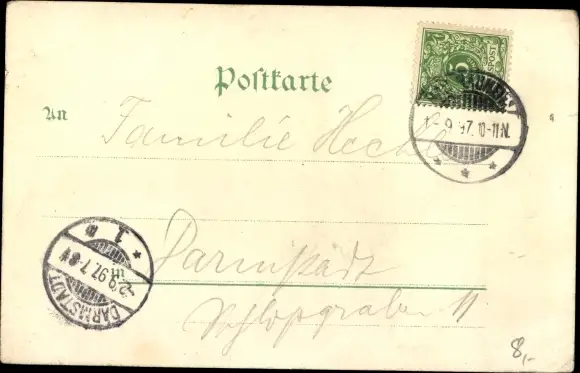 Postkarte
An Familie
Darmstadt
Schloßgraben 11
5
9.97.10-11N.
DARMSTADT
-2.9.97.7-8V
1
8,-